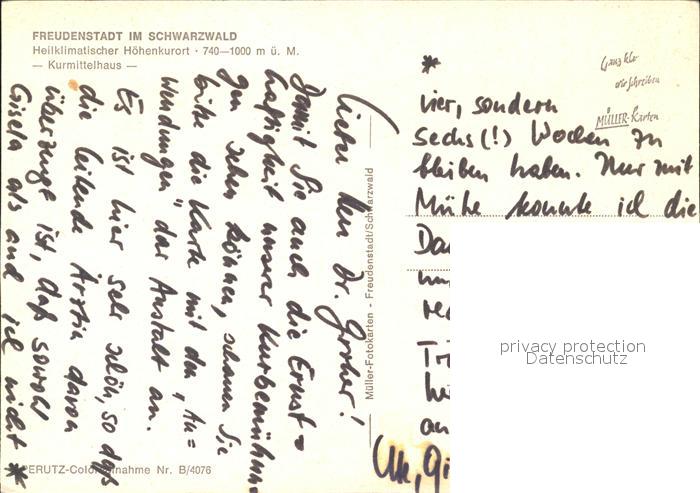 FREUDENSTADT IM SCHWARZWALD
Heilklimatischer Höhenkurort · 740—1000 m ü. M.
— Kurmittelhaus —
Lieber Herr Dr. !
Damit Sie auch die Ernst=
haftigkeit unserer Kurbemühun=
gen sehen können, schauen Sie
bitte die Karte mit den „An=
wendungen" der Anstalt an.
Es ist hier sehr schön, so daß
die leitende Ärztin davon
überzeugt ist, daß sowohl
Gisela als auch ich nicht *
PERUTZ-Color Aufnahme Nr. B/4076
Müller-Fotokarten - Freudenstadt/Schwarzwald
Ganz klar
wir schreiben
MÜLLER-Karten
*
vier, sondern
sechs (!) Wochen zu
bleiben haben. Nur mit
Mühe konnte ich die
an
privacy protection
Datenschutz